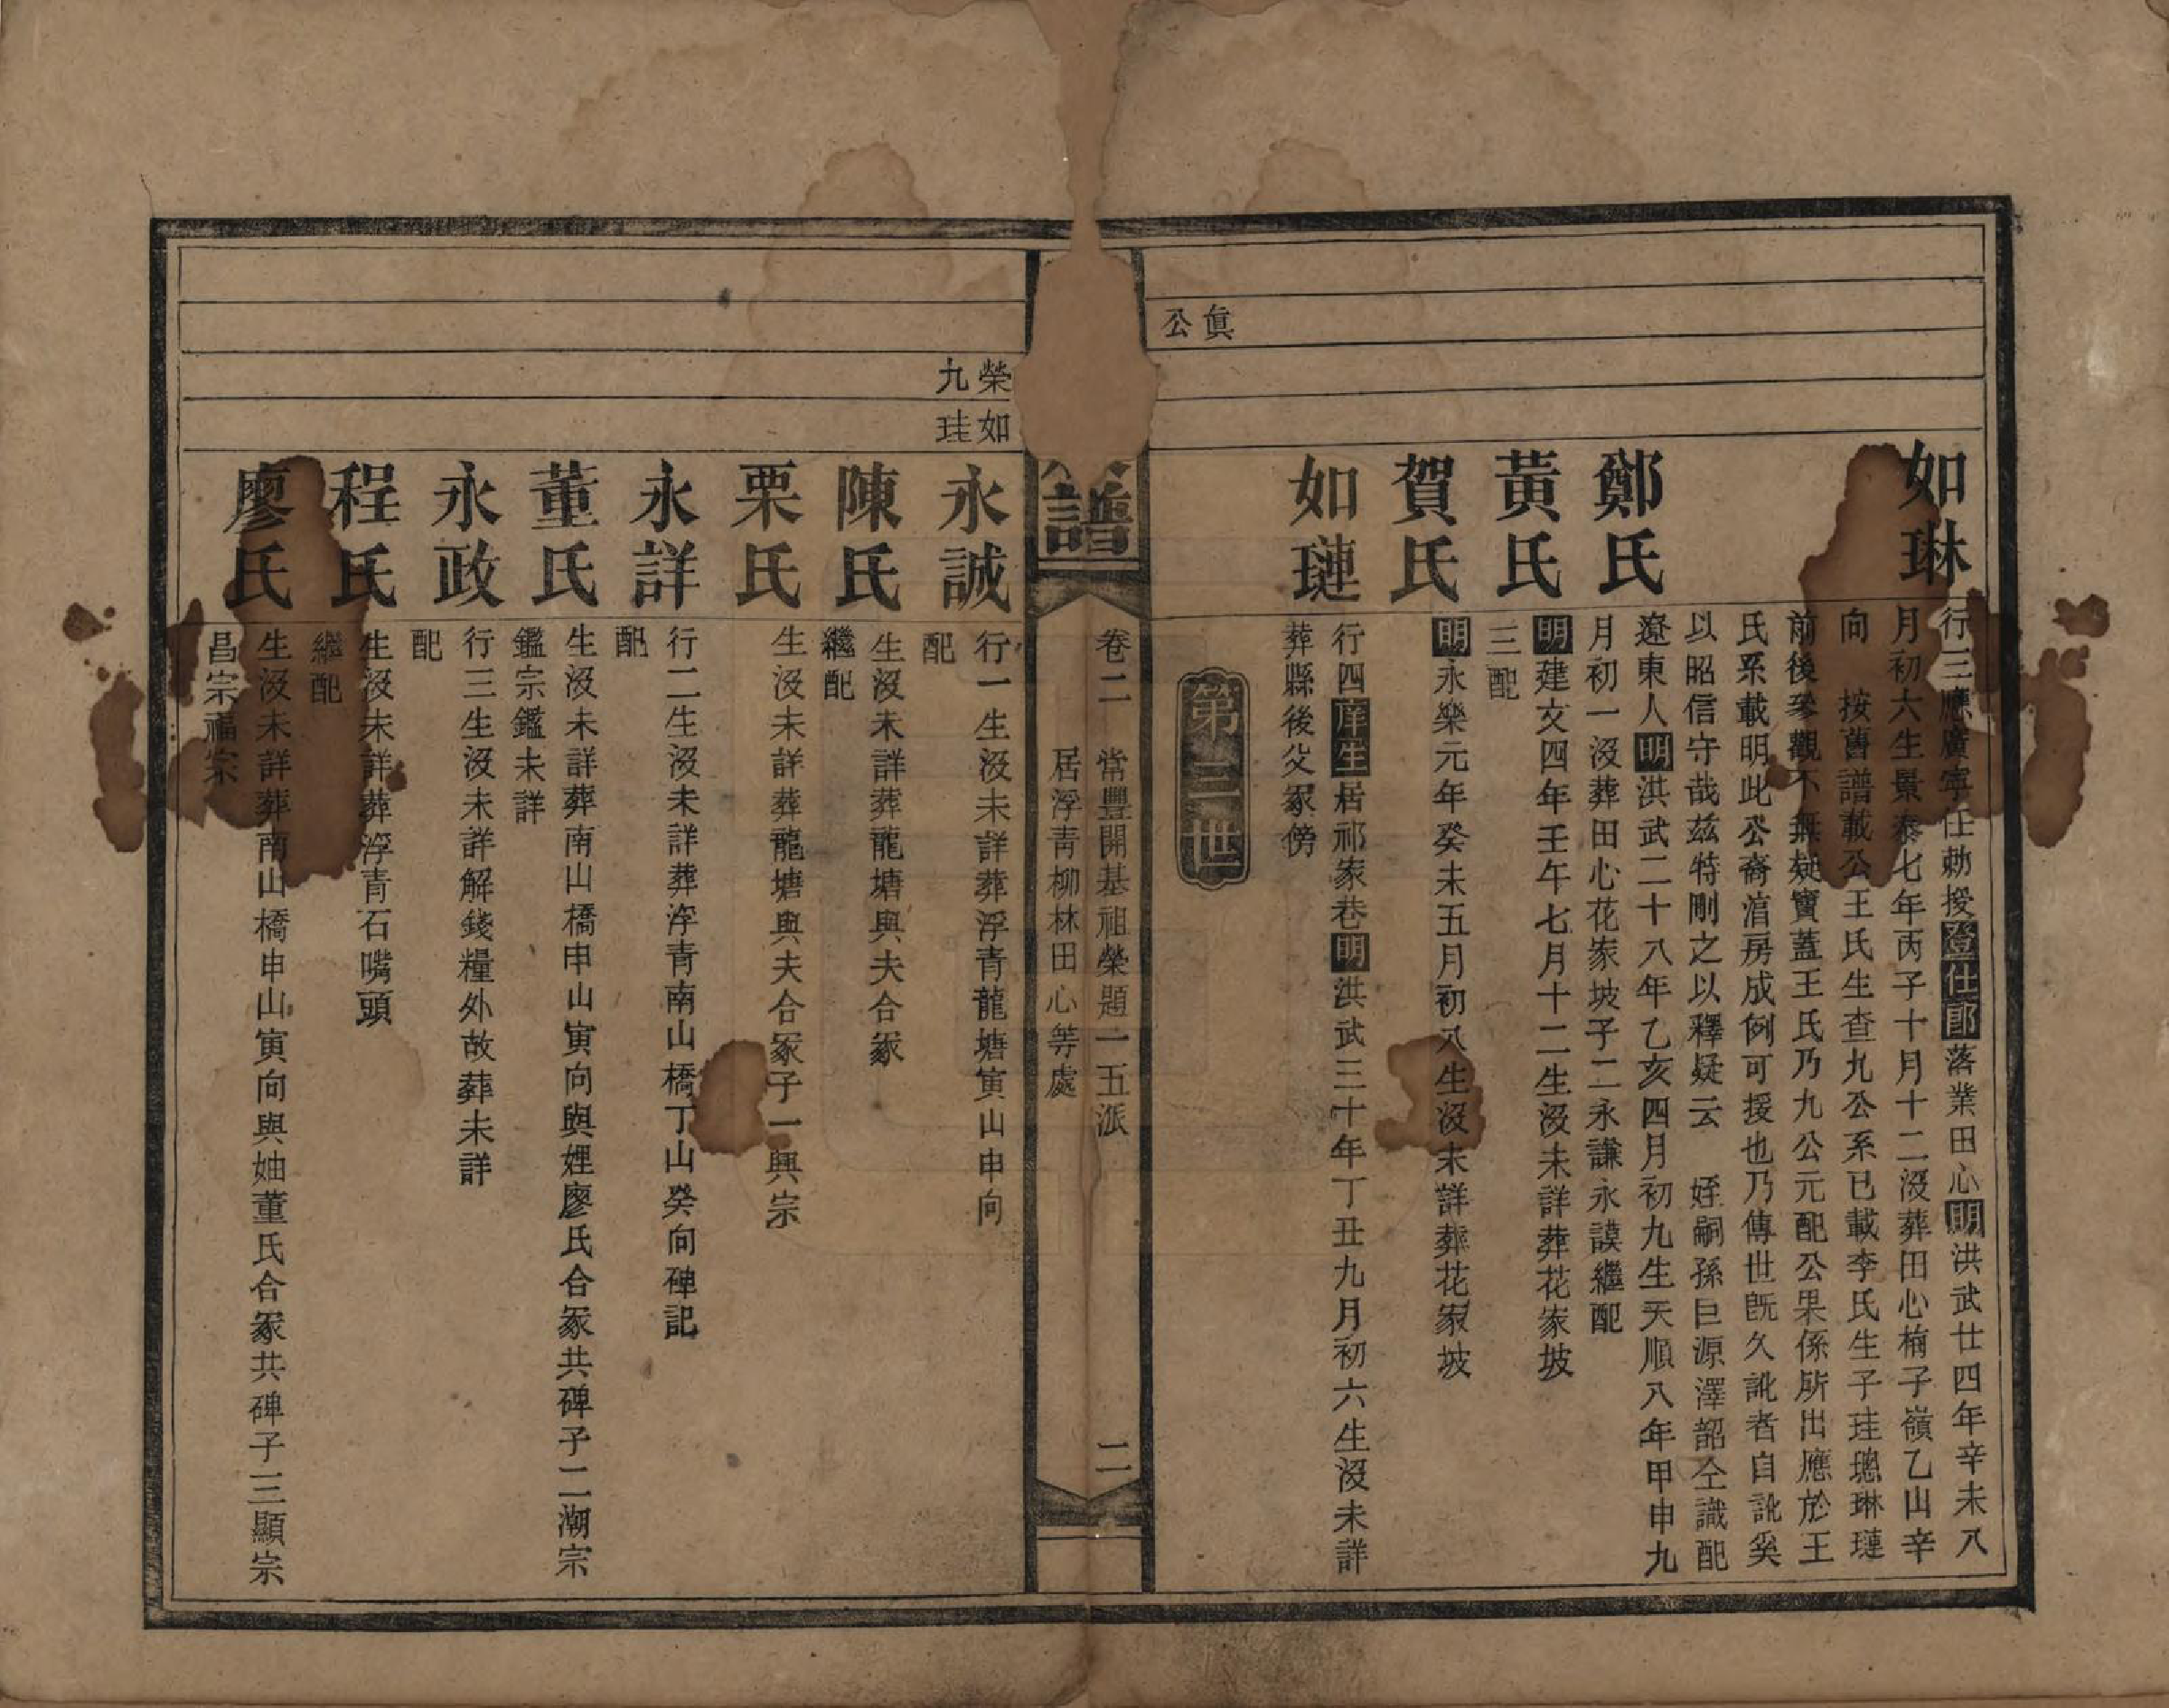 眞
公
如琳
行三應廣寧任勅授登仕郎落業田心明洪武廿四年辛未八
月初六生景泰七年丙子十月十二沒葬田心楠子嶺乙山辛
向 按舊譜載公王氏生查九公系已載李氏生子珪璁琳璉
前後叅觀不無疑竇蓋王氏乃九公元配公果係所出應於王
氏系載明此公裔涫房成例可援也乃傳世旣久訛者自訛奚
以昭信守哉茲特刪之以釋疑云 姪嗣孫巨源澤韶仝識配
鄭氏
遼東人明洪武二十八年乙亥四月初九生天順八年甲申九
月初一沒葬田心花家坡子二永謙永謨繼配
黃氏
明建文四年壬午七月十二生沒未詳葬花家坡
三配
賀氏
明永樂元年癸未五月初八生沒未詳葬花家坡
如璉
行四庠生居祁家巷明洪武三十年丁丑九月初六生沒未詳
葬縣後父冢傍
第三世
譜
卷二 常豐開基祖榮題一五派
居浮青柳林田心等處
二
榮
九
如
珪
永誠
行一生沒未詳葬浮青龍塘寅山申向
配
陳氏
生沒未詳葬龍塘與夫合冢
繼配
栗氏
生沒未詳葬龍塘與夫合冢子一興宗
永詳
行二生沒未詳葬浮青南山橋丁山癸向碑記
配
董氏
生沒未詳葬南山橋申山寅向與娌廖氏合冢共碑子二潮宗
鑑宗鑑未詳
永政
行三生沒未詳解錢糧外故葬未詳
配
程氏
生沒未詳葬浮青石嘴頭
繼配
廖氏
生沒未詳葬南山橋申山寅向與妯董氏合冢共碑子三顯宗
昌宗福宗